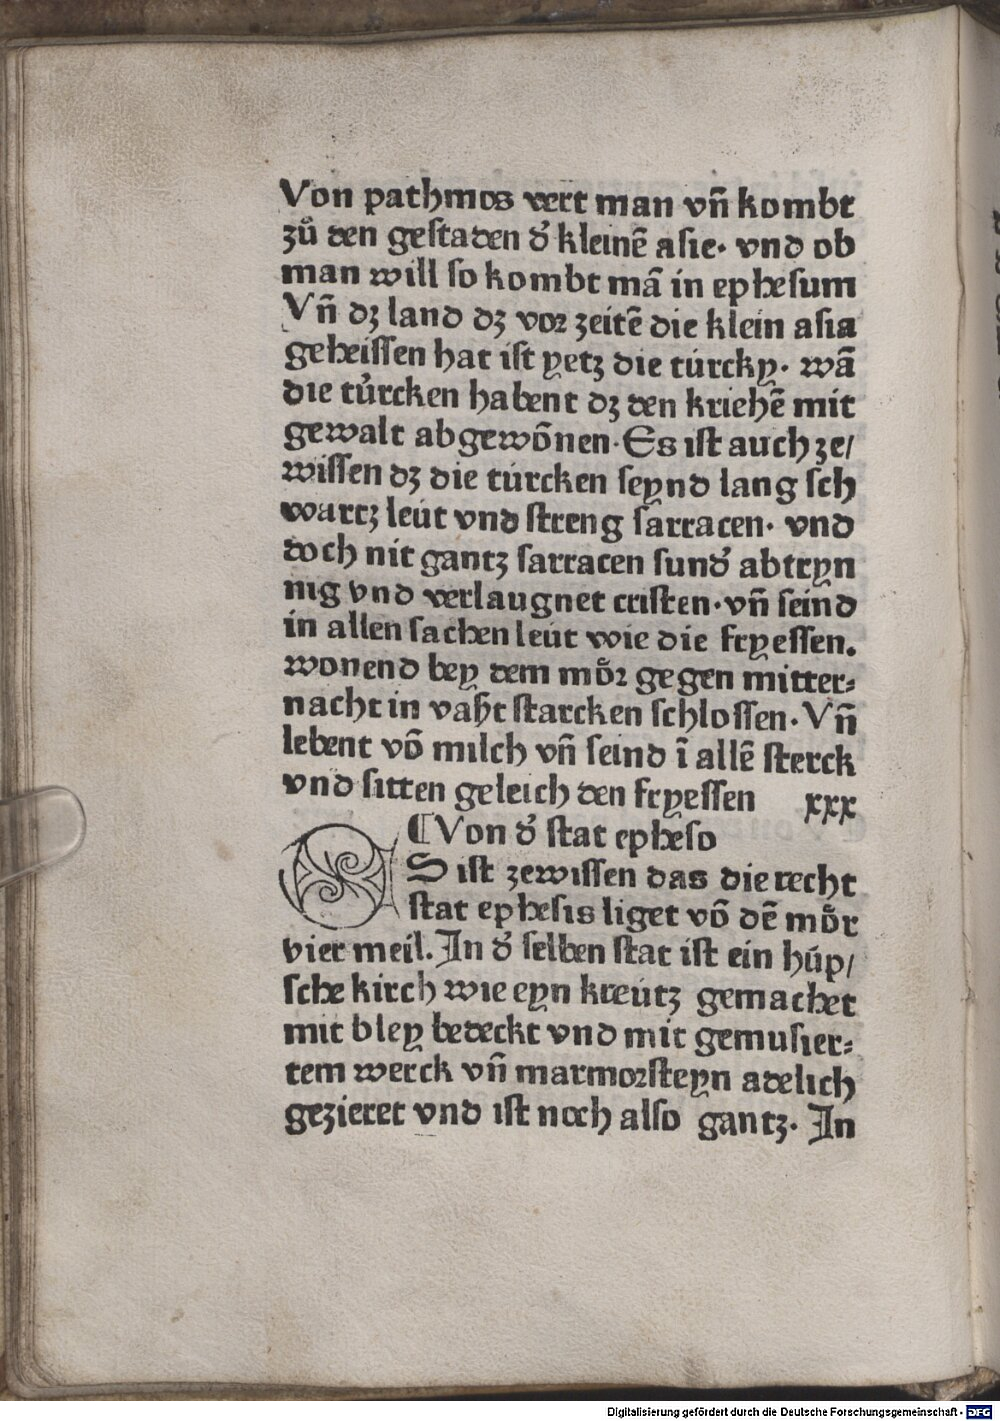 Von pathmos vert man vn̄ kombt
zů den gestaden d᷑ kleinē asie· vnd ob
man will so kombt mā in ephesum
Vn̄ dꝫ land dꝫ voꝛ zeitē die klein asia
geheissen hat ist yetz die túrcky· wā
die tu᷑rcken habent dꝫ den kriehē mit
gewalt abgewōnen·Es ist auch ze/
wissen dꝫ die túrcken seynd lang sch
wartz leút vnd streng sarracen· vnd
doch nit gantz sarracen sund᷑ abtryn
nig vnd verlaugnet cristen·vn̄ seind
in allen sachen leút wie die fryessen.
wonend bey dem moͤꝛ gegen mitter⸗
nacht in vaſ̈t starcken schlossen·Vn̄
lebent vō milch vn̄ seind ī allē sterck
vnd sitten geleich den fryessen xxx
¶Von d᷑ stat epheso
ES ist zewissen das die recht
stat ephesis liget vō dē moͤr
vier meil.In d᷑ selben stat ist ein húp/
sche kirch wie eyn kreútz gemachet
mit bley bedeckt vnd mit gemusier⸗
tem werck vn̄ marmoꝛsteyn adelich
gezieret vnd ist noch also gantz· In
Digitalisierung gefördert durch die Deutsche Forschungsgemeinschaft - DFG